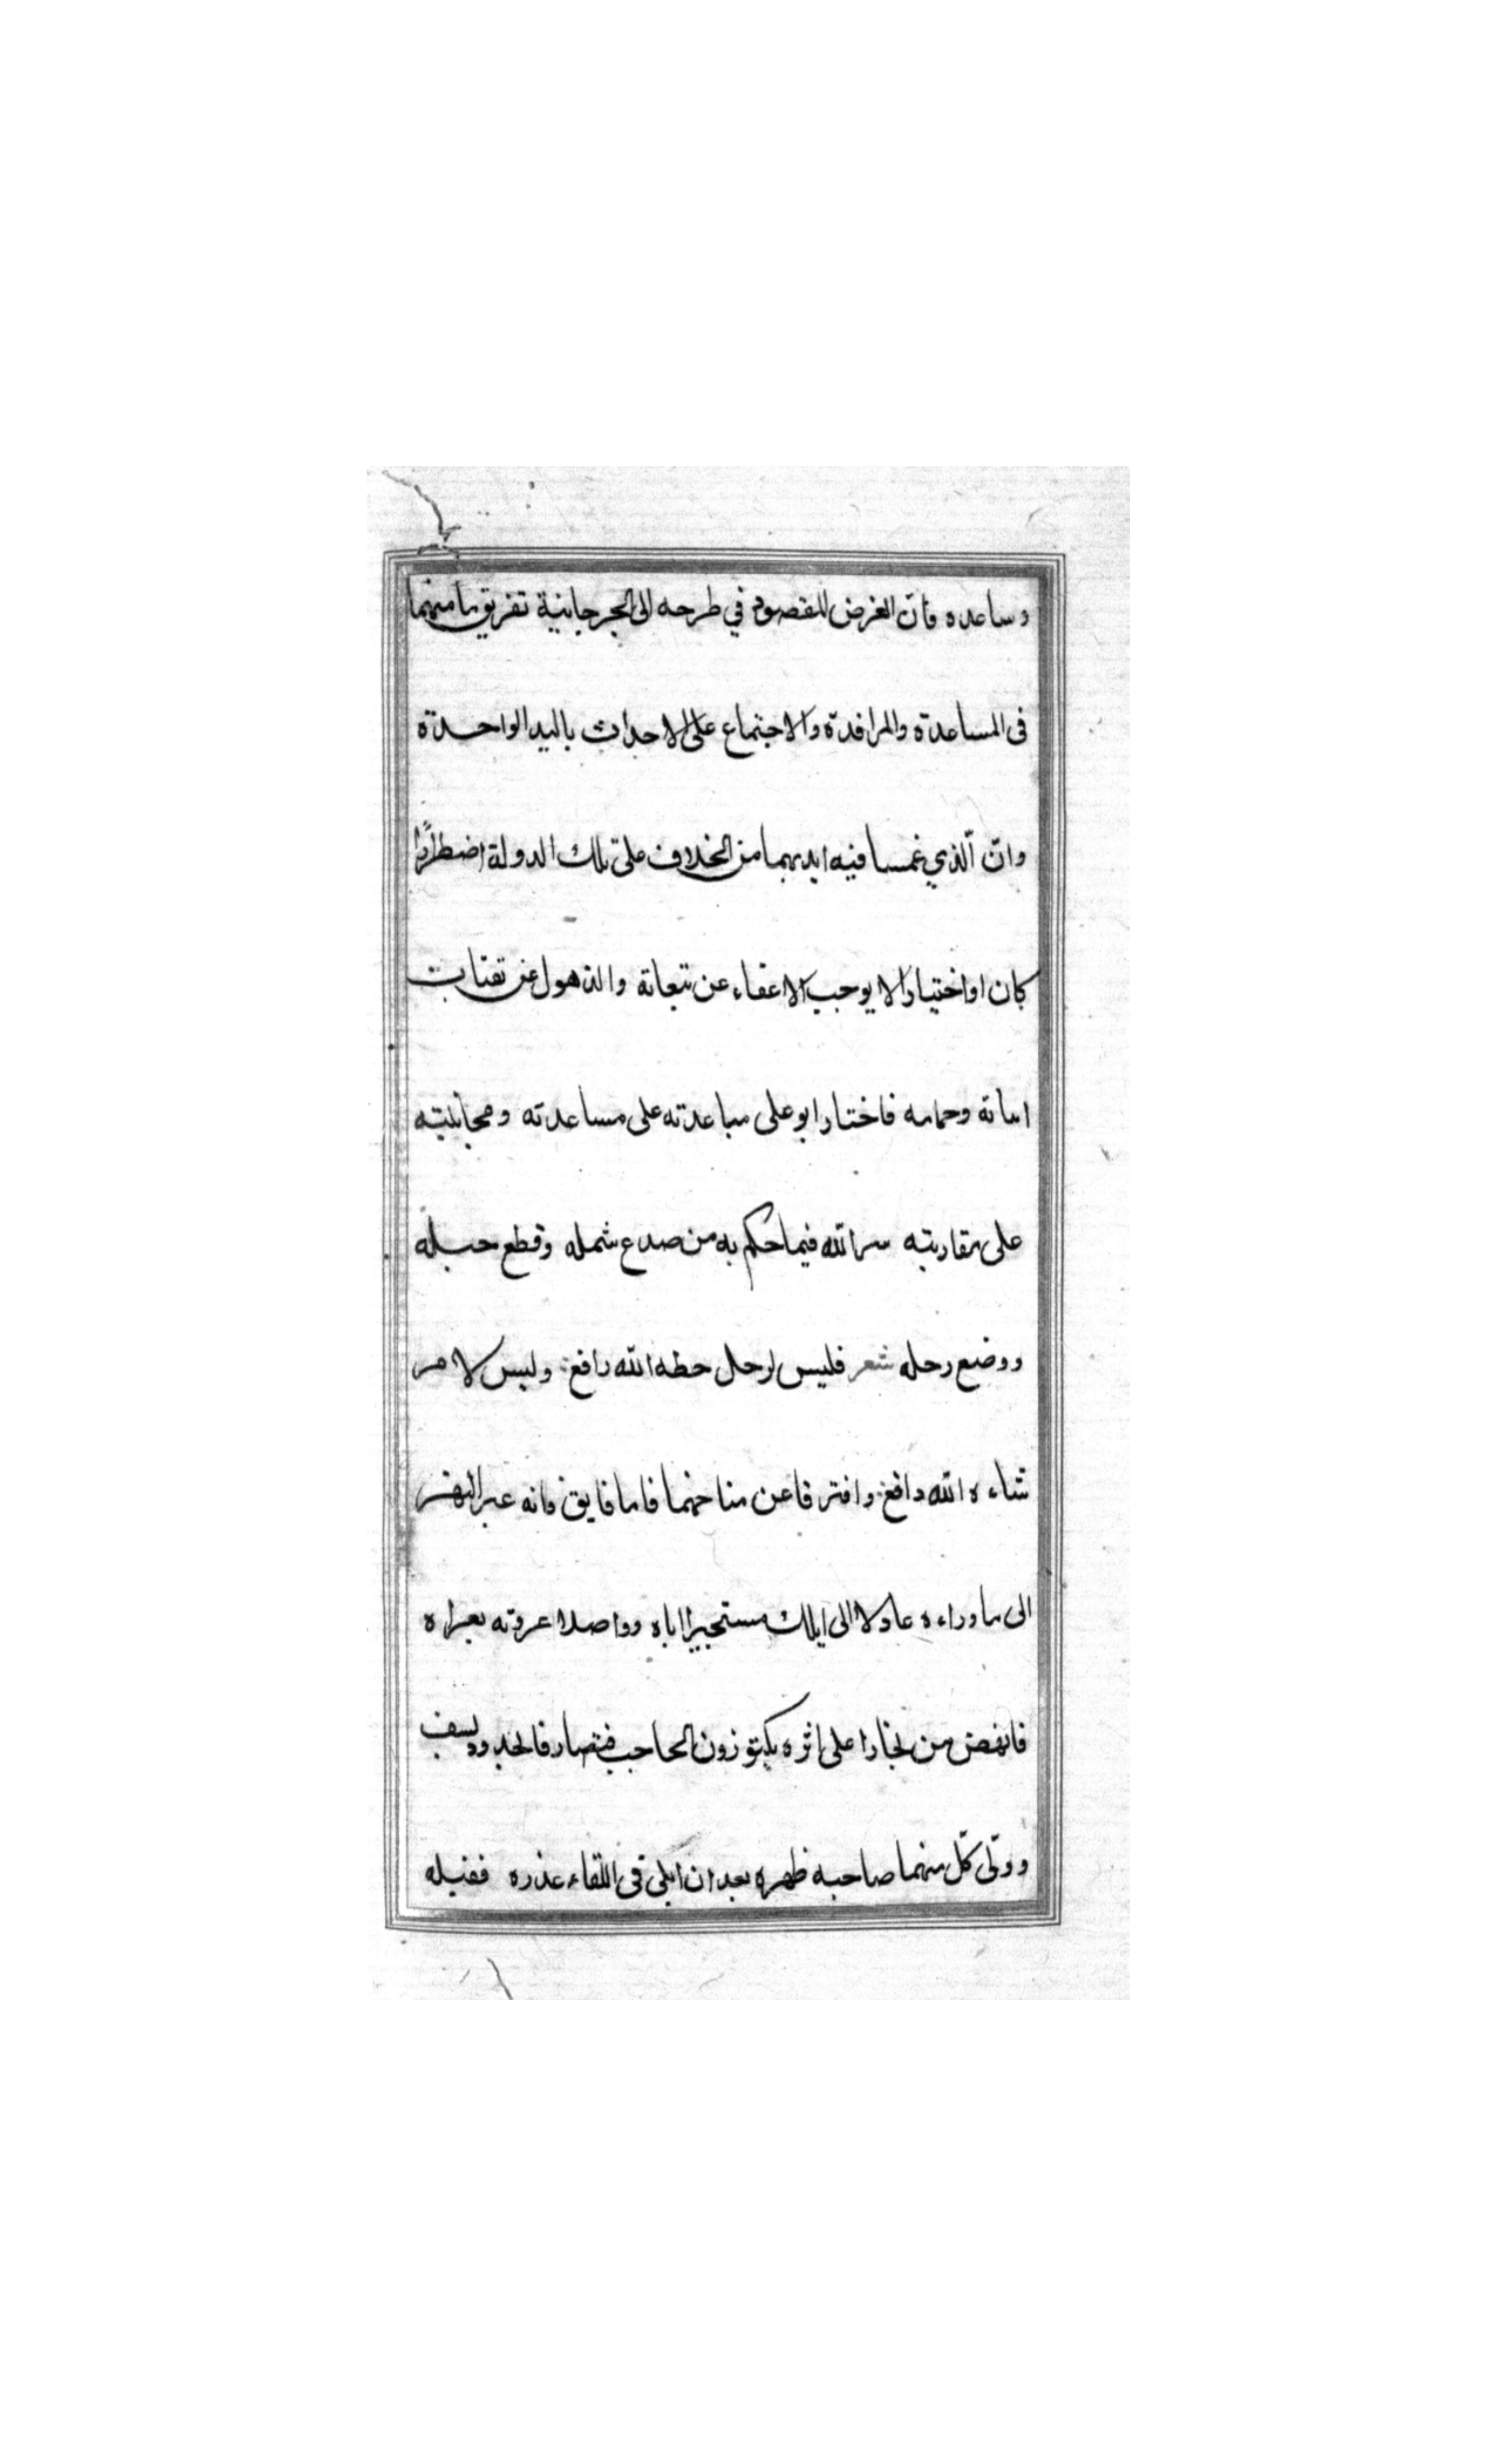 وساعده فان الغرض المقصود في طرحه الى الجرجانية تفريق ما منهما
فى المساعدة والمرافدة والاجتماع على الاحداث باليد الواحدة
وانّ الّذي غمسا فيه ايديهما من الخلاف على تلك الدولة اضطرارًا
كان او اختيارا لا يوجب الاعفاء عن تبعاته والذهول عن
اساته وحمامه فاختار ابو على مباعدته على مساعدته ومجانبته
على مقاربته سرا لله فيما حكم به من صدع شمله وقطع حبله
ووضع رحله شعر فليس لرحل حطه الله رافع وليس لامر
شاءه الله دافع وافترقا عن مناخهما فاما فايق فانه عبر النهر
الى ماوراءه عادلا الى ايلك مستجيرا اياه وواصلا عروته بعراه
فانهض من بخارا على اثره بكتوزون الحاجب فتصارفا الحدود بسف
وولّى كلّ منهما صاحبه ظهره بعد ان ابلى فى اللقاء عذره فقبله